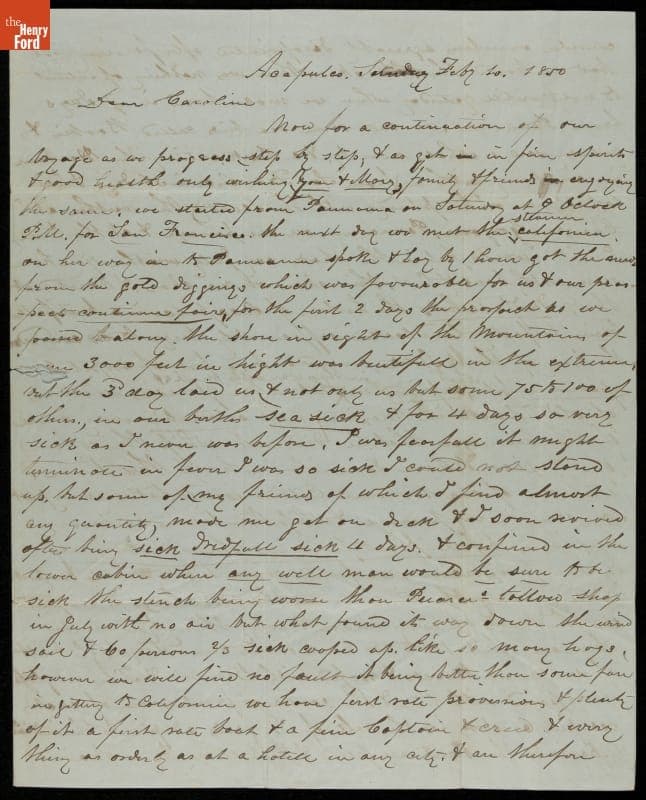 the
Henry
Ford
Acapulco. Sunday Feby 10. 1850
Dear Caroline
Now for a continuation of our
Voyage as we progress step by step, & as yet in fine spirits
& good health only wishing you & Mary, family & friends enjoying
the same. we started from Pannama on Saturday at 8 Oclock
P.M. for San Francisco. the next day we met the steamer california
on her way in to Pannama spoke & lay by 1 hour got the news
from the gold diggings which was favourable for us & our pros-
pects continue fair, for the first 2 days the prospect as we
passed along the shore in sight of the Mountains of
some 3000 feet in hight was beutifull in the extreme,
but the 3d day laid us & not only us but some 75 to 100 of
others, in our births sea sick & for 4 days so very
sick as I never was before. I was fearfull it might
terminate in fever I was so sick I could not stand
up. but some of my friends of which I find almost
any quantity, made me get on deck & I soon revived
after being sick dredfull sick 4 days. & confined in the
lower cabin where any well man would be sure to be
sick the stench being worse than tallow shop
in July with no air but what found it way down the wind
sail & 60 persons 2/3 sick cooped up. like so many hogs,
however we will find no fault it being better than some fare
in getting to California we have first rate provisions & plenty
of it a first rate boat & a fine Captain & crew & every
thing as orderly as at a hotell in any city. & are therefore